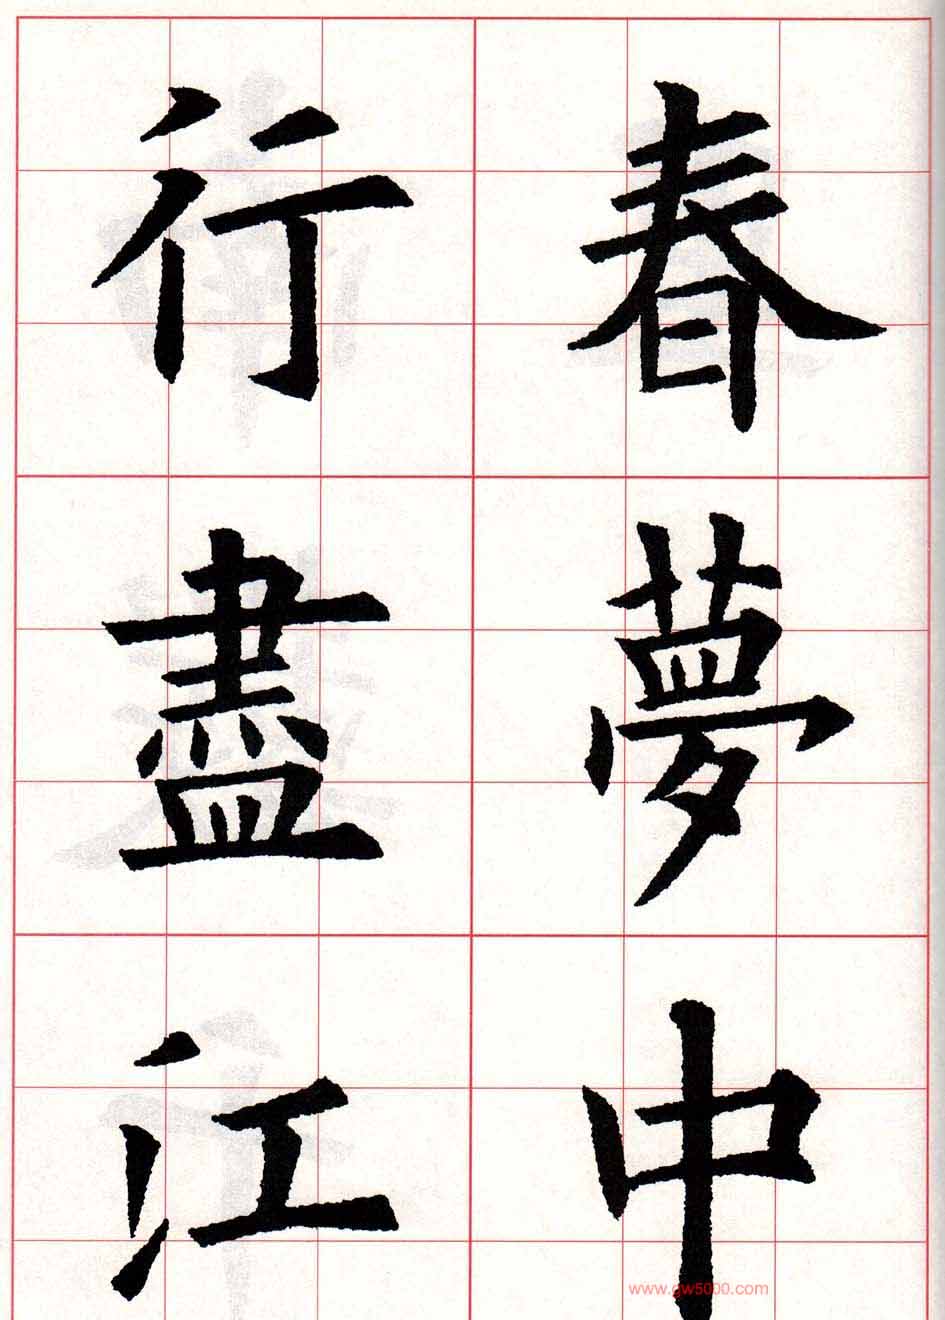 春夢中
行盡江
www.gw5000.com